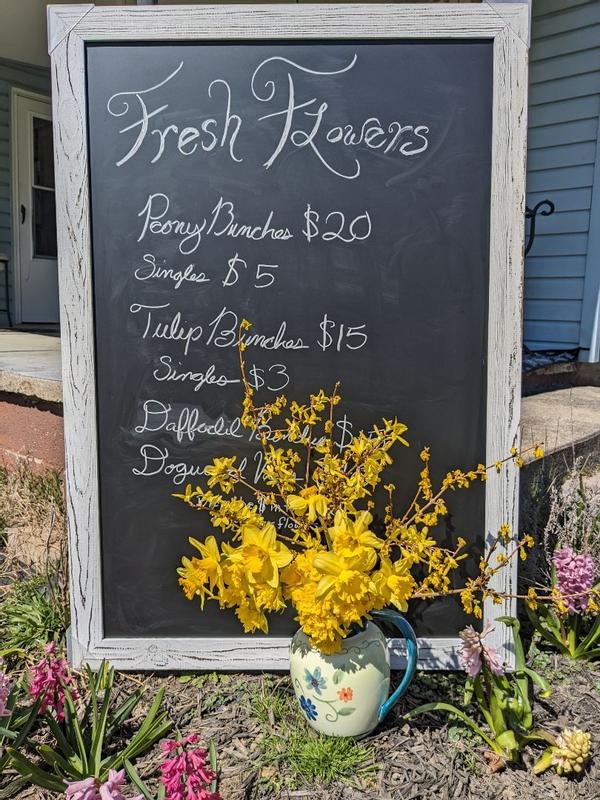 Fresh Flowers
Peony Bunches $20
Singles $5
Tulip Bunches $15
Singles $3
Daffodil $